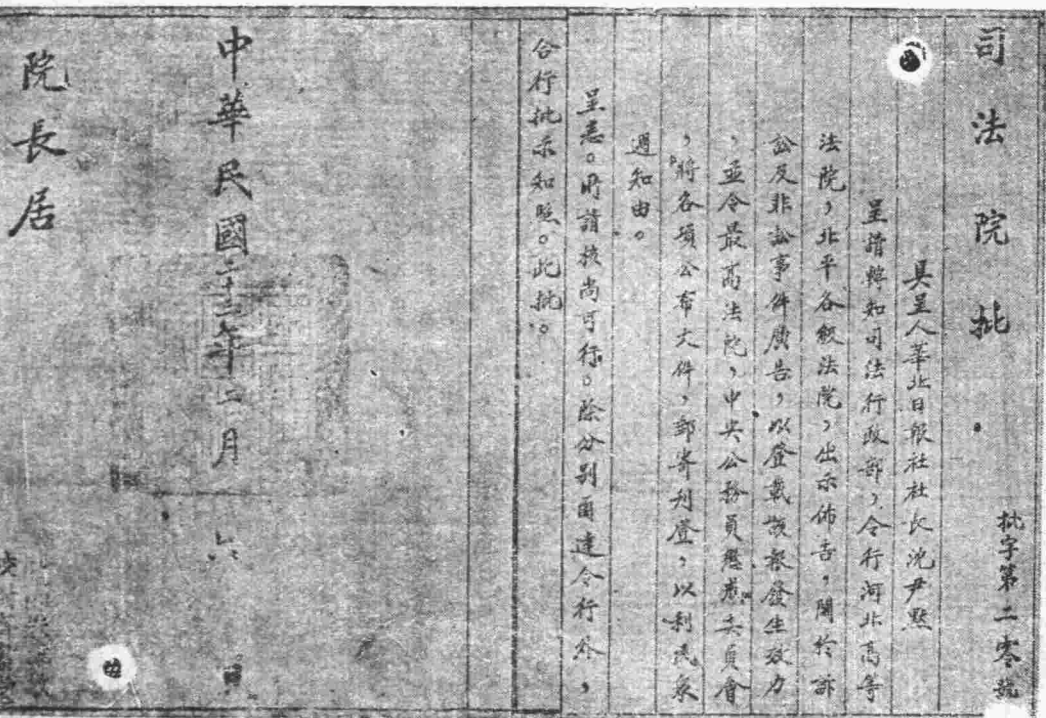 司法院批
批字第二零號
具呈人華北日報社社長沈尹默
呈請轉知司法行政部，令行河北高等
法院，北平各級法院，出示佈告，關於訴
訟及非訟事件廣告，以登載該報發生效力
，並令最高法院，中央公務員懲戒委員會
，將各項公布文件，郵寄刊登，以利民衆
週知由。
呈悉。所請核尚可行。除分別函達令行外，
合行批示知照。此批。
中華民國二十三年二月六日
院長居